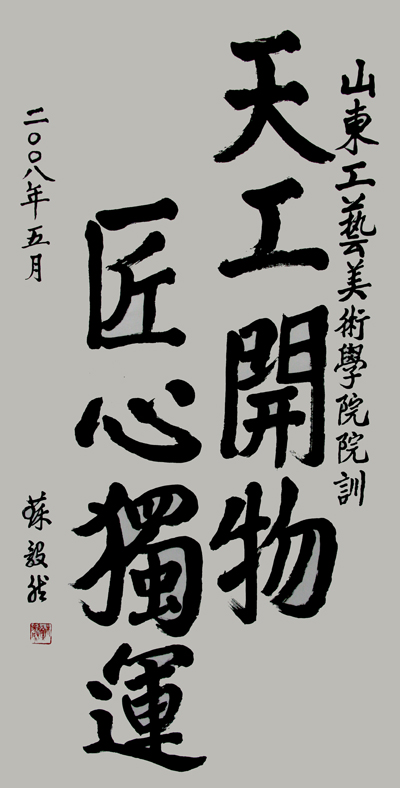 山東工藝美術學院院訓
天工開物
匠心獨運
二〇〇八年五月
蘇毅然